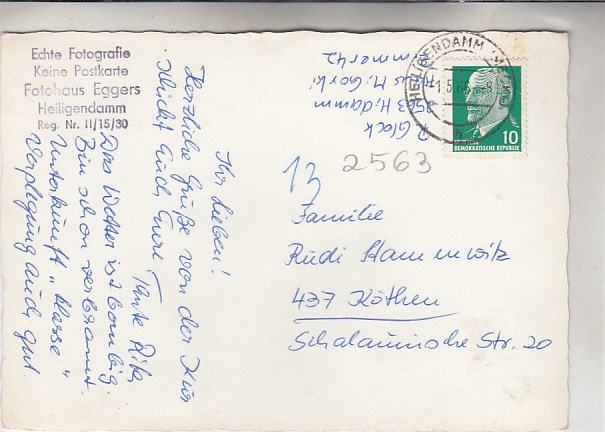 Echte Fotografie
Keine Postkarte
Fotohaus Eggers
Heiligendamm
Reg. Nr. II/15/30
Ihr Lieben!
Herzliche Grüße von der Kur
schickt Euch Eure
Tante Rita
Das Wetter ist bombig.
Bin schon verbrannt.
Unterkunft „klasse“
Verpflegung auch gut.
R. Glock
2563 H,damm
Haus M. Gorki
Zimmer 42
HEILIGENDAMM
10
DEMOKRATISCHE REPUBLIK
2563
13
Familie
Rudi Hamerwitz
437 Köthen
Schalaunische Str. 20